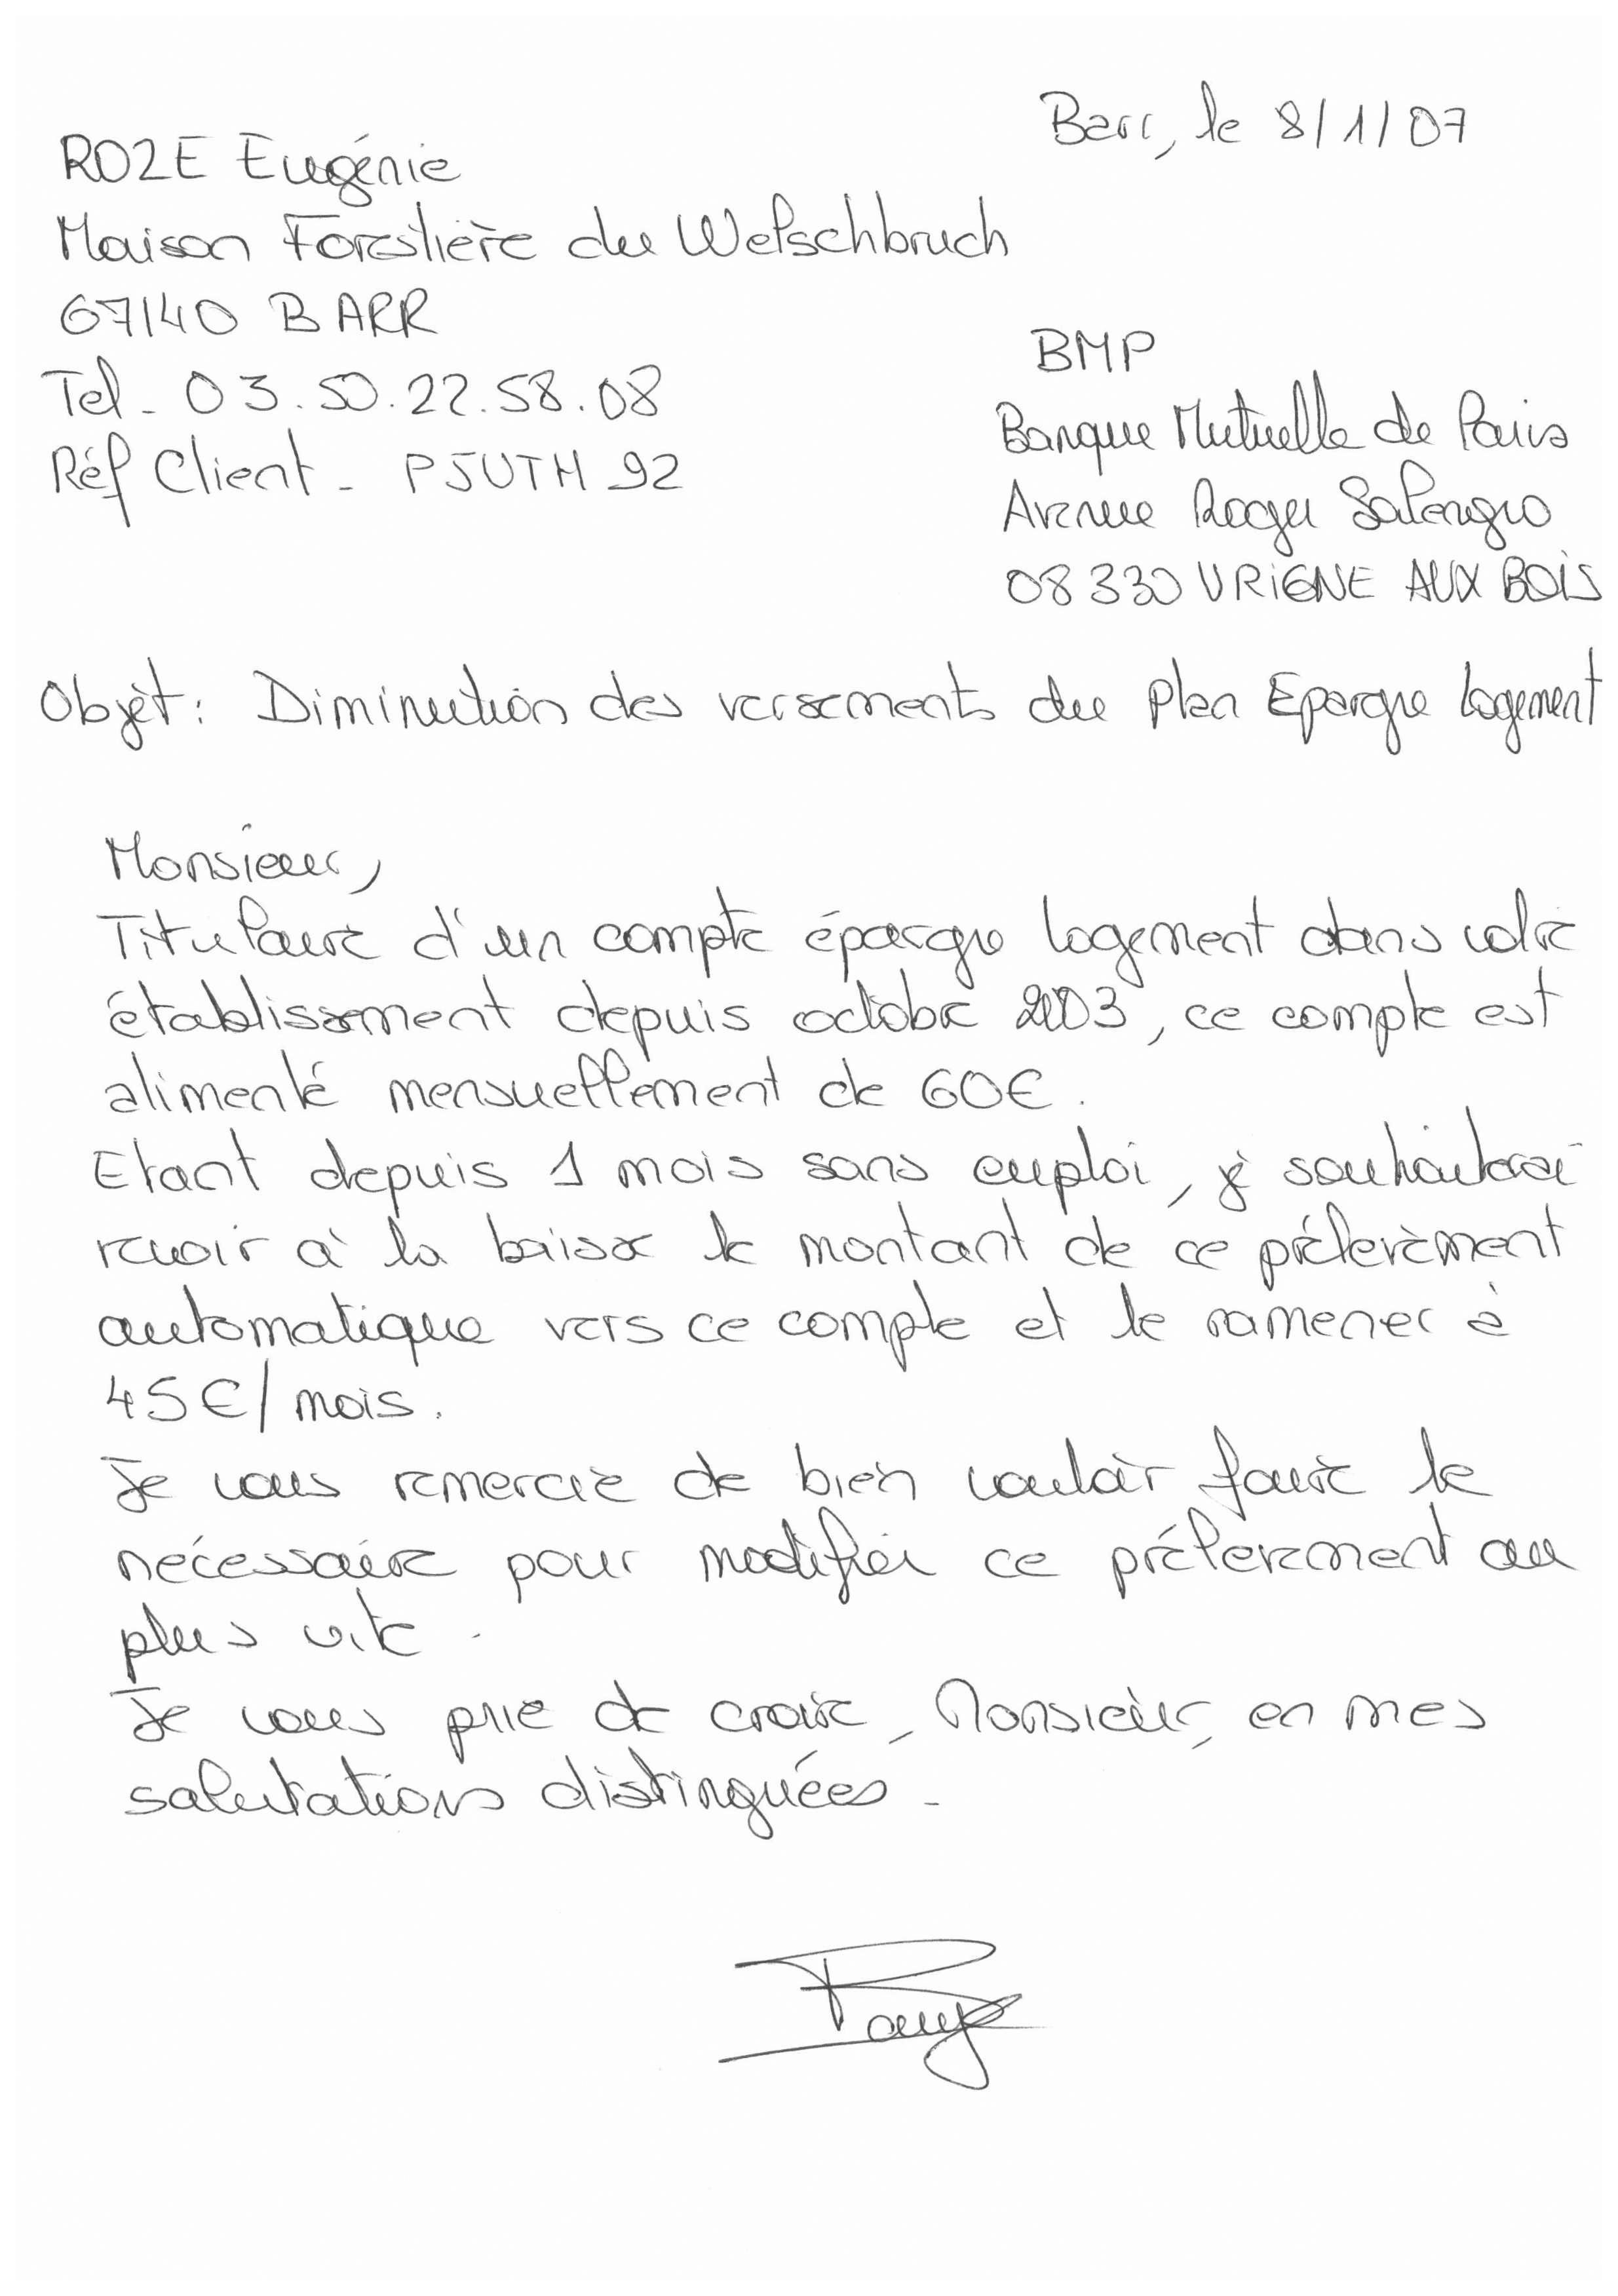 Barr, le 8/1/07
ROZE Eugénie
Maison Forestière du Welschbruch
67140 BARR
Tel - 03.50.22.58.08
Réf Client - PJUTH 92
BMP
Banque Mutuelle de Paris
Avenue Roger Salengro
08330 VRIGNE AUX BOIS
Objet : Diminution des versements du Plan Epargne logement
Monsieur,
Titulaire d'un compte épargne logement dans votre
établissement depuis octobre 2003, ce compte est
alimenté mensuellement de 60€.
Etant depuis 1 mois sans emploi, je souhaiterai
revoir à la baisse le montant de ce prélevèment
automatique vers ce compte et le ramener à
45€/mois.
Je vous remercie de bien vouloir faire le
nécessaire pour modifier ce prélevement au
plus vite.
Je vous prie de croire, Monsieur, en mes
salutations distinguées.